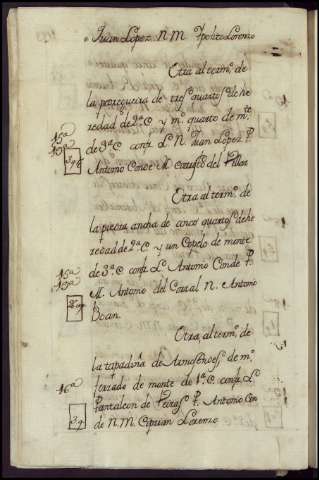 Juan Lopez N. M. Ypolito Lorenzo
Otra al term.º de
la porrequeira de tres quartos de he
redad de 2.ª C. y m.º quarto de m.te
15ª
de 3ª C. conf. L. N. Juan Lopez P.
Antonio Conde M. Carlos del Villar
Otra al term.º de
la pieira ancha de cinco quartos de he
redad de 2ª C. y un Copelo de monte
15ª
de 3ª C. conf. L. Antonio Conde P.
M. Antonio del Corral N. Antonio
Boan.
Otra, al term.º de
la tapadiña de de m.º
16ª
ferrado de monte de 1ª C. conf. L.
Pantaleon de Peiras P. Antonio Con
de N. M. Ciprian Lorenzo